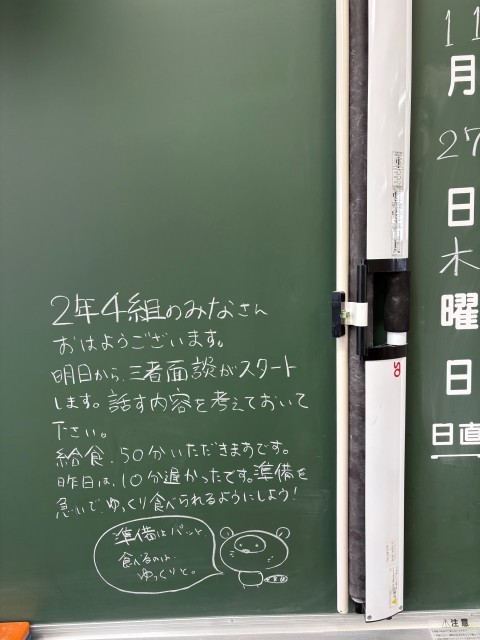 2年4組のみなさん
おはようございます。
明日から、三者面談がスタート
します。話す内容を考えておいて
下さい。
給食、50分いただきますです。
昨日は、10分遅かったです。準備を
急いで、ゆっくり食べられるようにしよう!
準備はパッと
食べるのは、
ゆっくりと。
11
月
27
日
木
曜
日
日直
注意